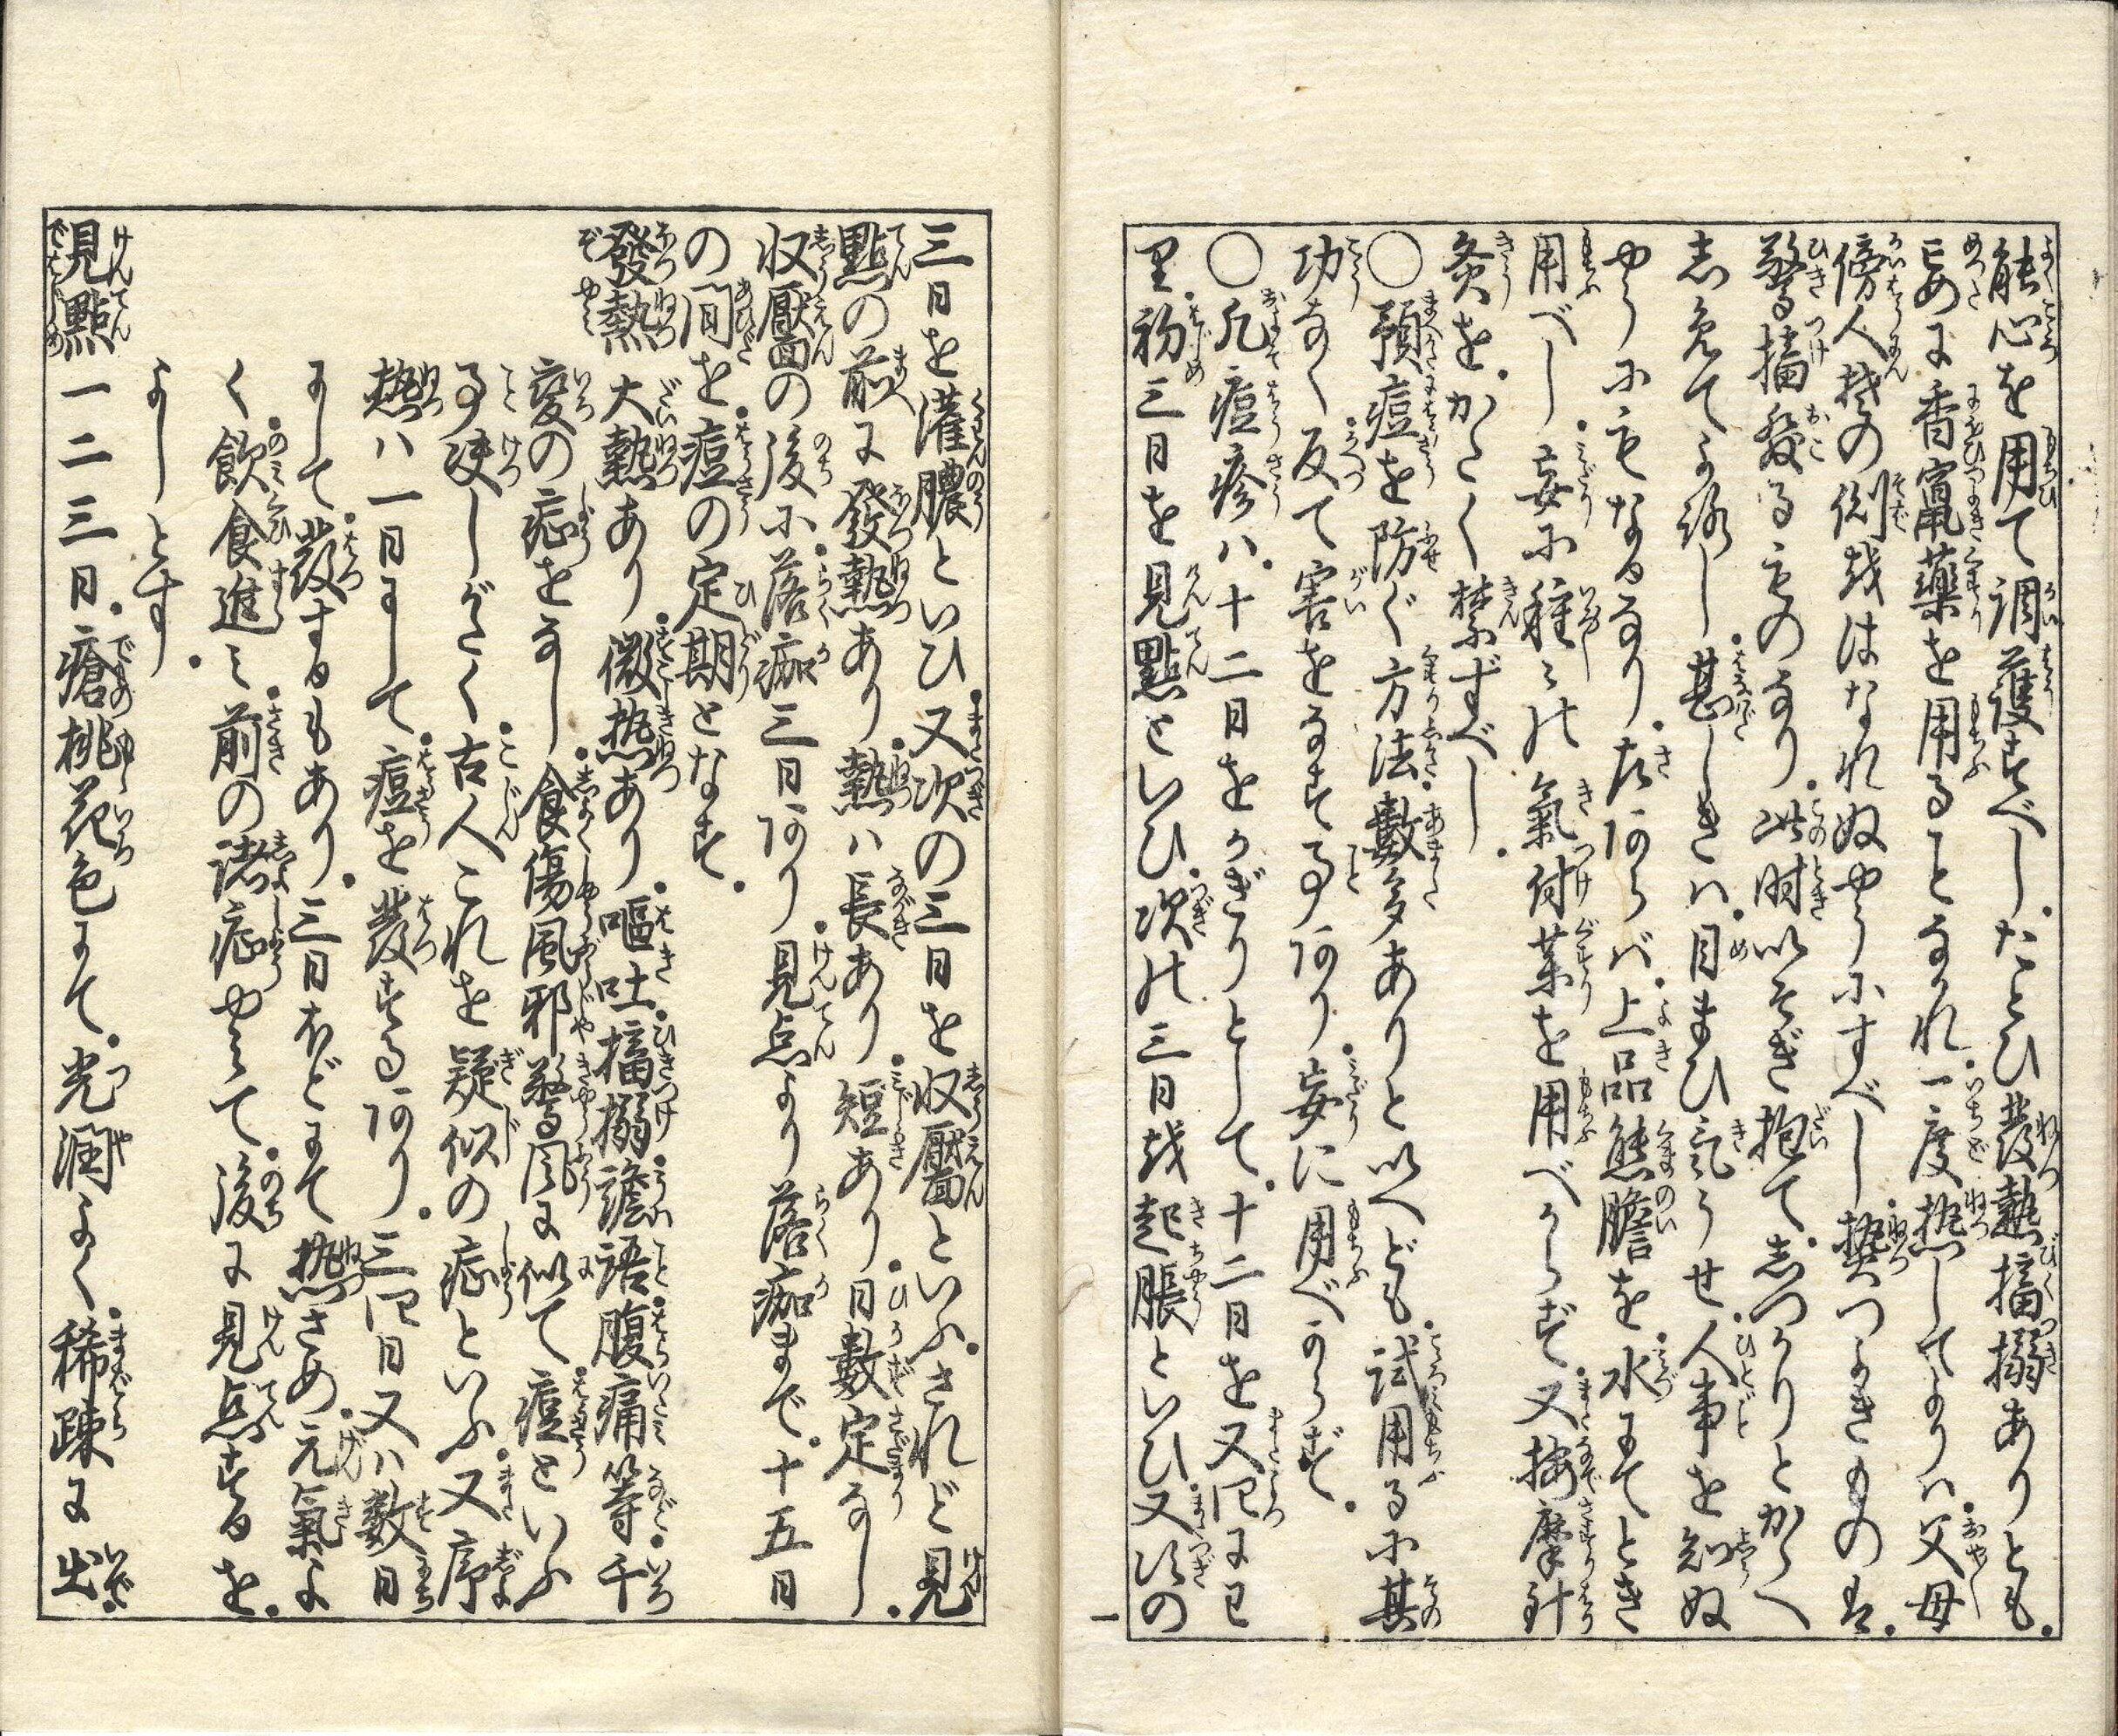 能心を用て調護すべしたとひ發熱搐搦ありとも
に香竄藥を用ることなかれ一度熱してよりハ父母
傍人其の側をはなれぬやうにすべし熱つよきものは
驚搐發るものなり此時いそぎ抱てしつかりとかゝへ
しめてよろし甚しきハ目まひ氣うせ人事を知ぬ
やうにもなるなりさあらバ上品熊膽を水にてとき
用べし妄に種々の氣付薬を用べからず又按摩針
灸をかたく禁ずべし
〇預痘を防ぐ方法數多ありと以へども試用るに其
功なく反て害をなす事あり妄に用べからず
〇凡痘疹ハ十二日をかぎりとして十二日を又四にわ
り初三日を見點といひ次の三日を起脹といひ又次の
一
三日を灌膿といひ又次の三日を収靨といふされど見
點の前に發熱あり熱ハ長あり短あり日數定なし
収靨の後に落痂三日あり見点より落痂まで十五日
の間を痘の定期となす
發熱 大熱あり微熱あり嘔吐搐搦譫語腹痛等千
變の症をなし食傷風邪驚風に似て痘といふ
事决しがたく古人これを疑似の症といふ又序
熱ハ一日にして痘を發するあり三四日又ハ数日
にして發するもあり三日ほどにて熱さめ元氣よ
く飲食進ミ前の諸症やミて後に見点するを
よしとす
見點 一二三日瘡桃花色にて光潤よく稀疎に出